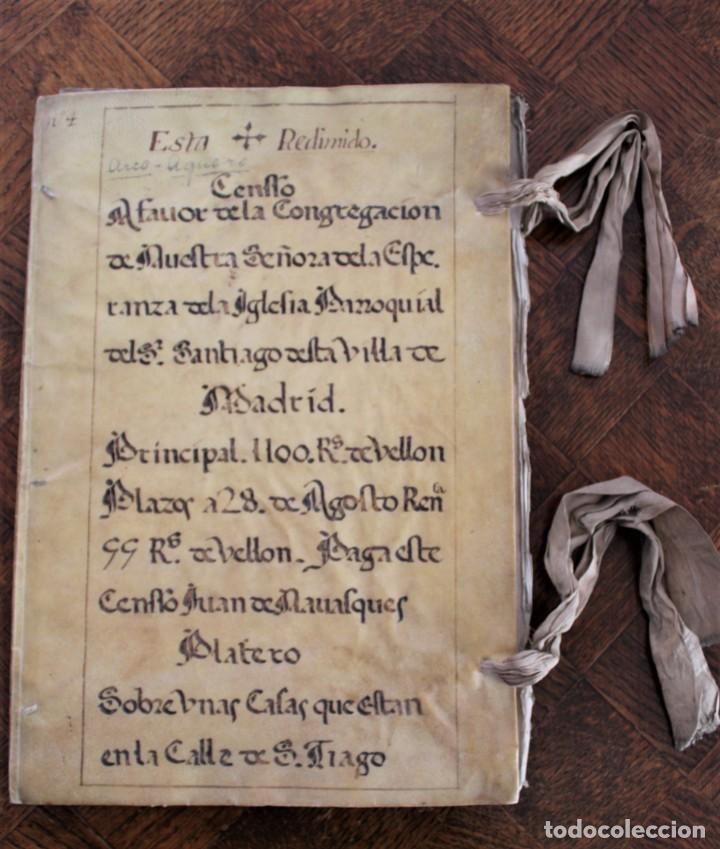 nº 4
Esta Redimido.
Arco-Aguero
Censso
A favor de la Congregacion
de Nuestra Señora de la Espe.
ranza de la Iglesia Parroquial
del Sr. Santiago desta Villa de
Madrid.
Principal. 1100. Rs. de Vellon
Plazos a 28. de Agosto Renª
99 Rs. de Vellon. Paga este
Censso Juan de Navasques
Platero
Sobre Unas Casas que estan
en la Calle de S. Tiago
todocoleccion
todocoleccion.net